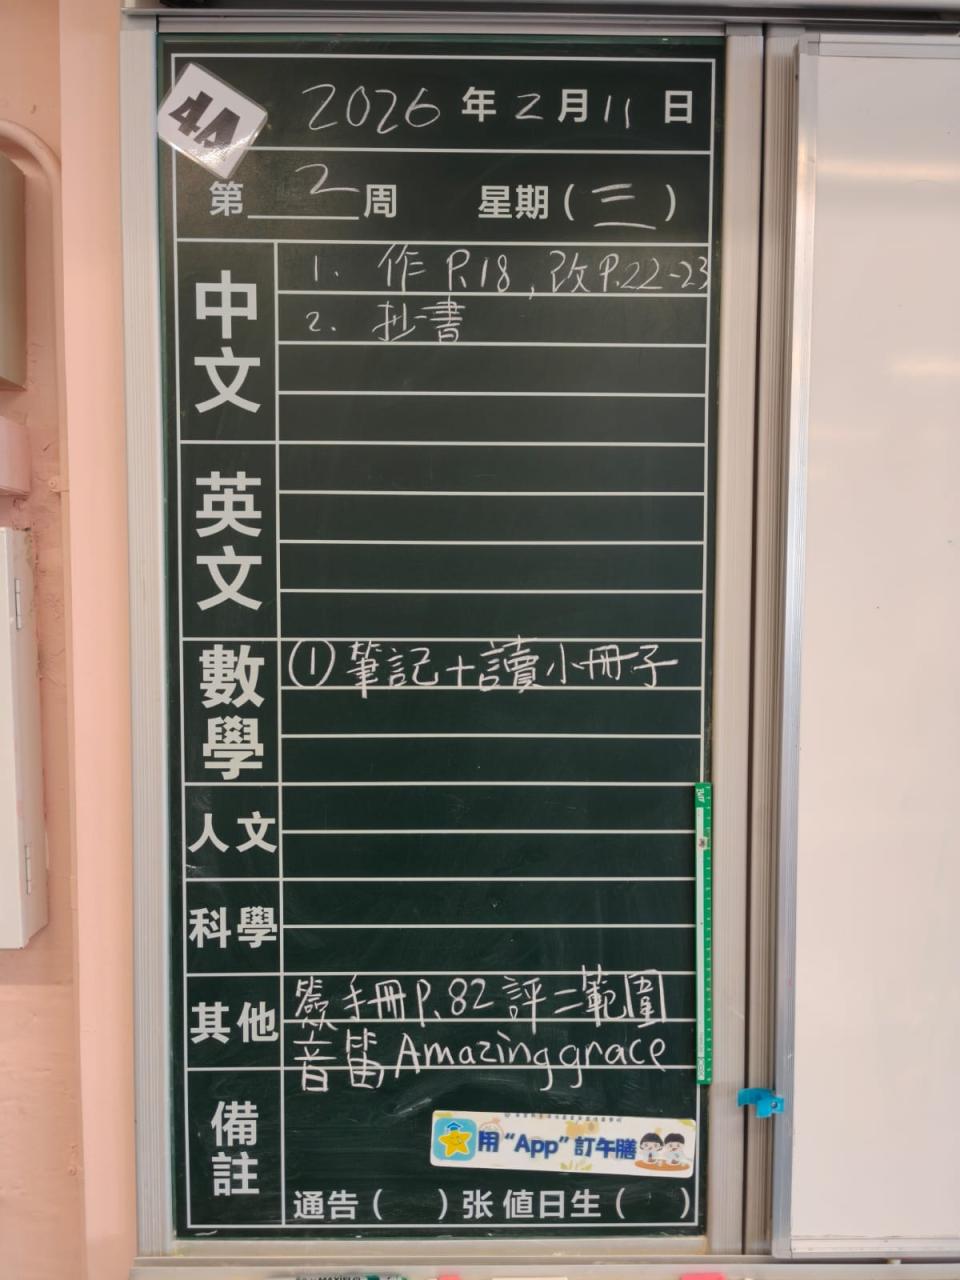 4A
2026年2月11日
第2周 星期(三)
中文
1. 作 P.18, 改P.22-23
2. 抄書
英文
數學
①筆記+讀小冊子
人文
科學
其他
簽手冊P.82評二範圍
音笛 Amazing grace
備註
用“App”訂午膳
通告( )张 值日生( )